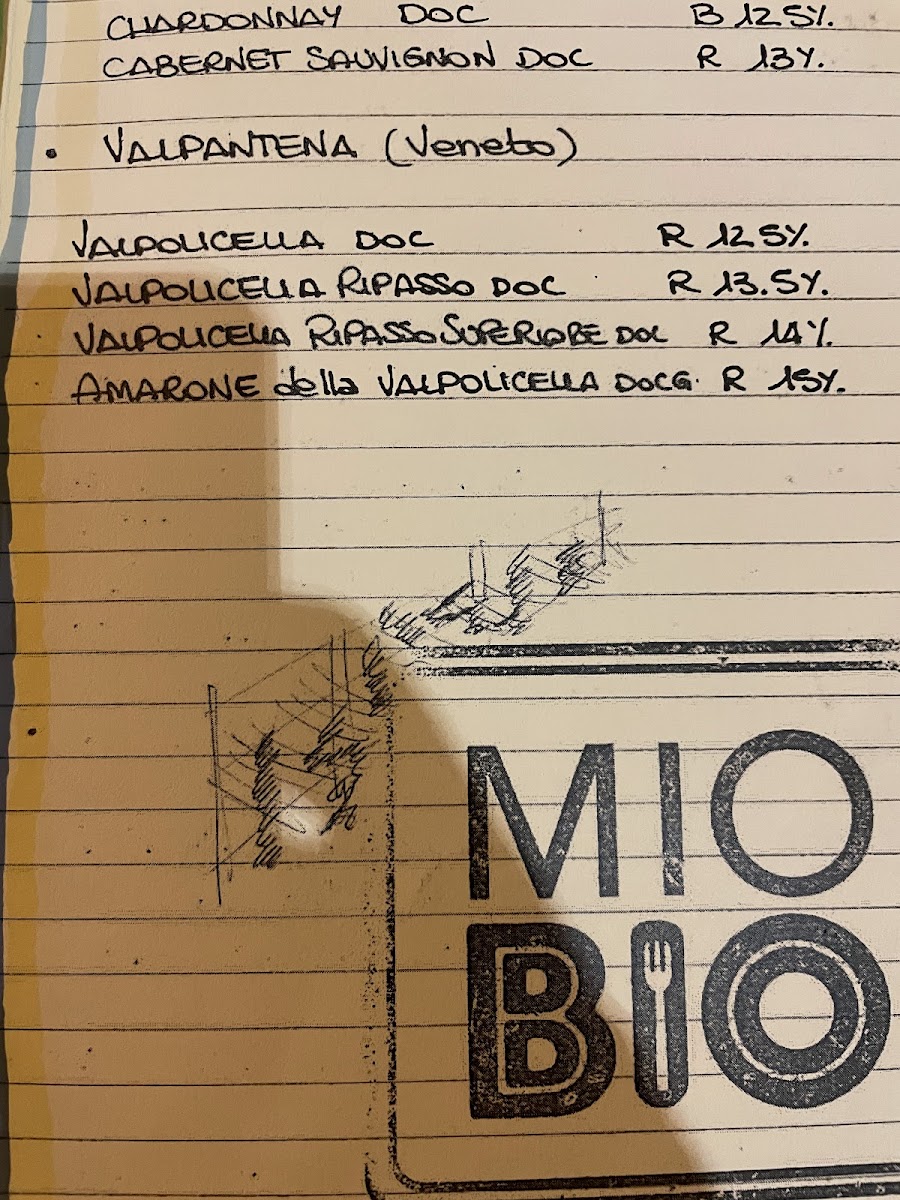 CHARDONNAY DOC B 12.5%.
CABERNET SAUVIGNON DOC R 13%.
• VALPANTENA (Veneto)
VALPOLICELLA DOC R 12.5%.
VALPOLICELLA RIPASSO DOC R 13.5%.
VALPOLICELLA RIPASSO SUPERIORE DOC R 14%.
AMARONE della VALPOLICELLA DOCG. R 15%.
MIO
BIO